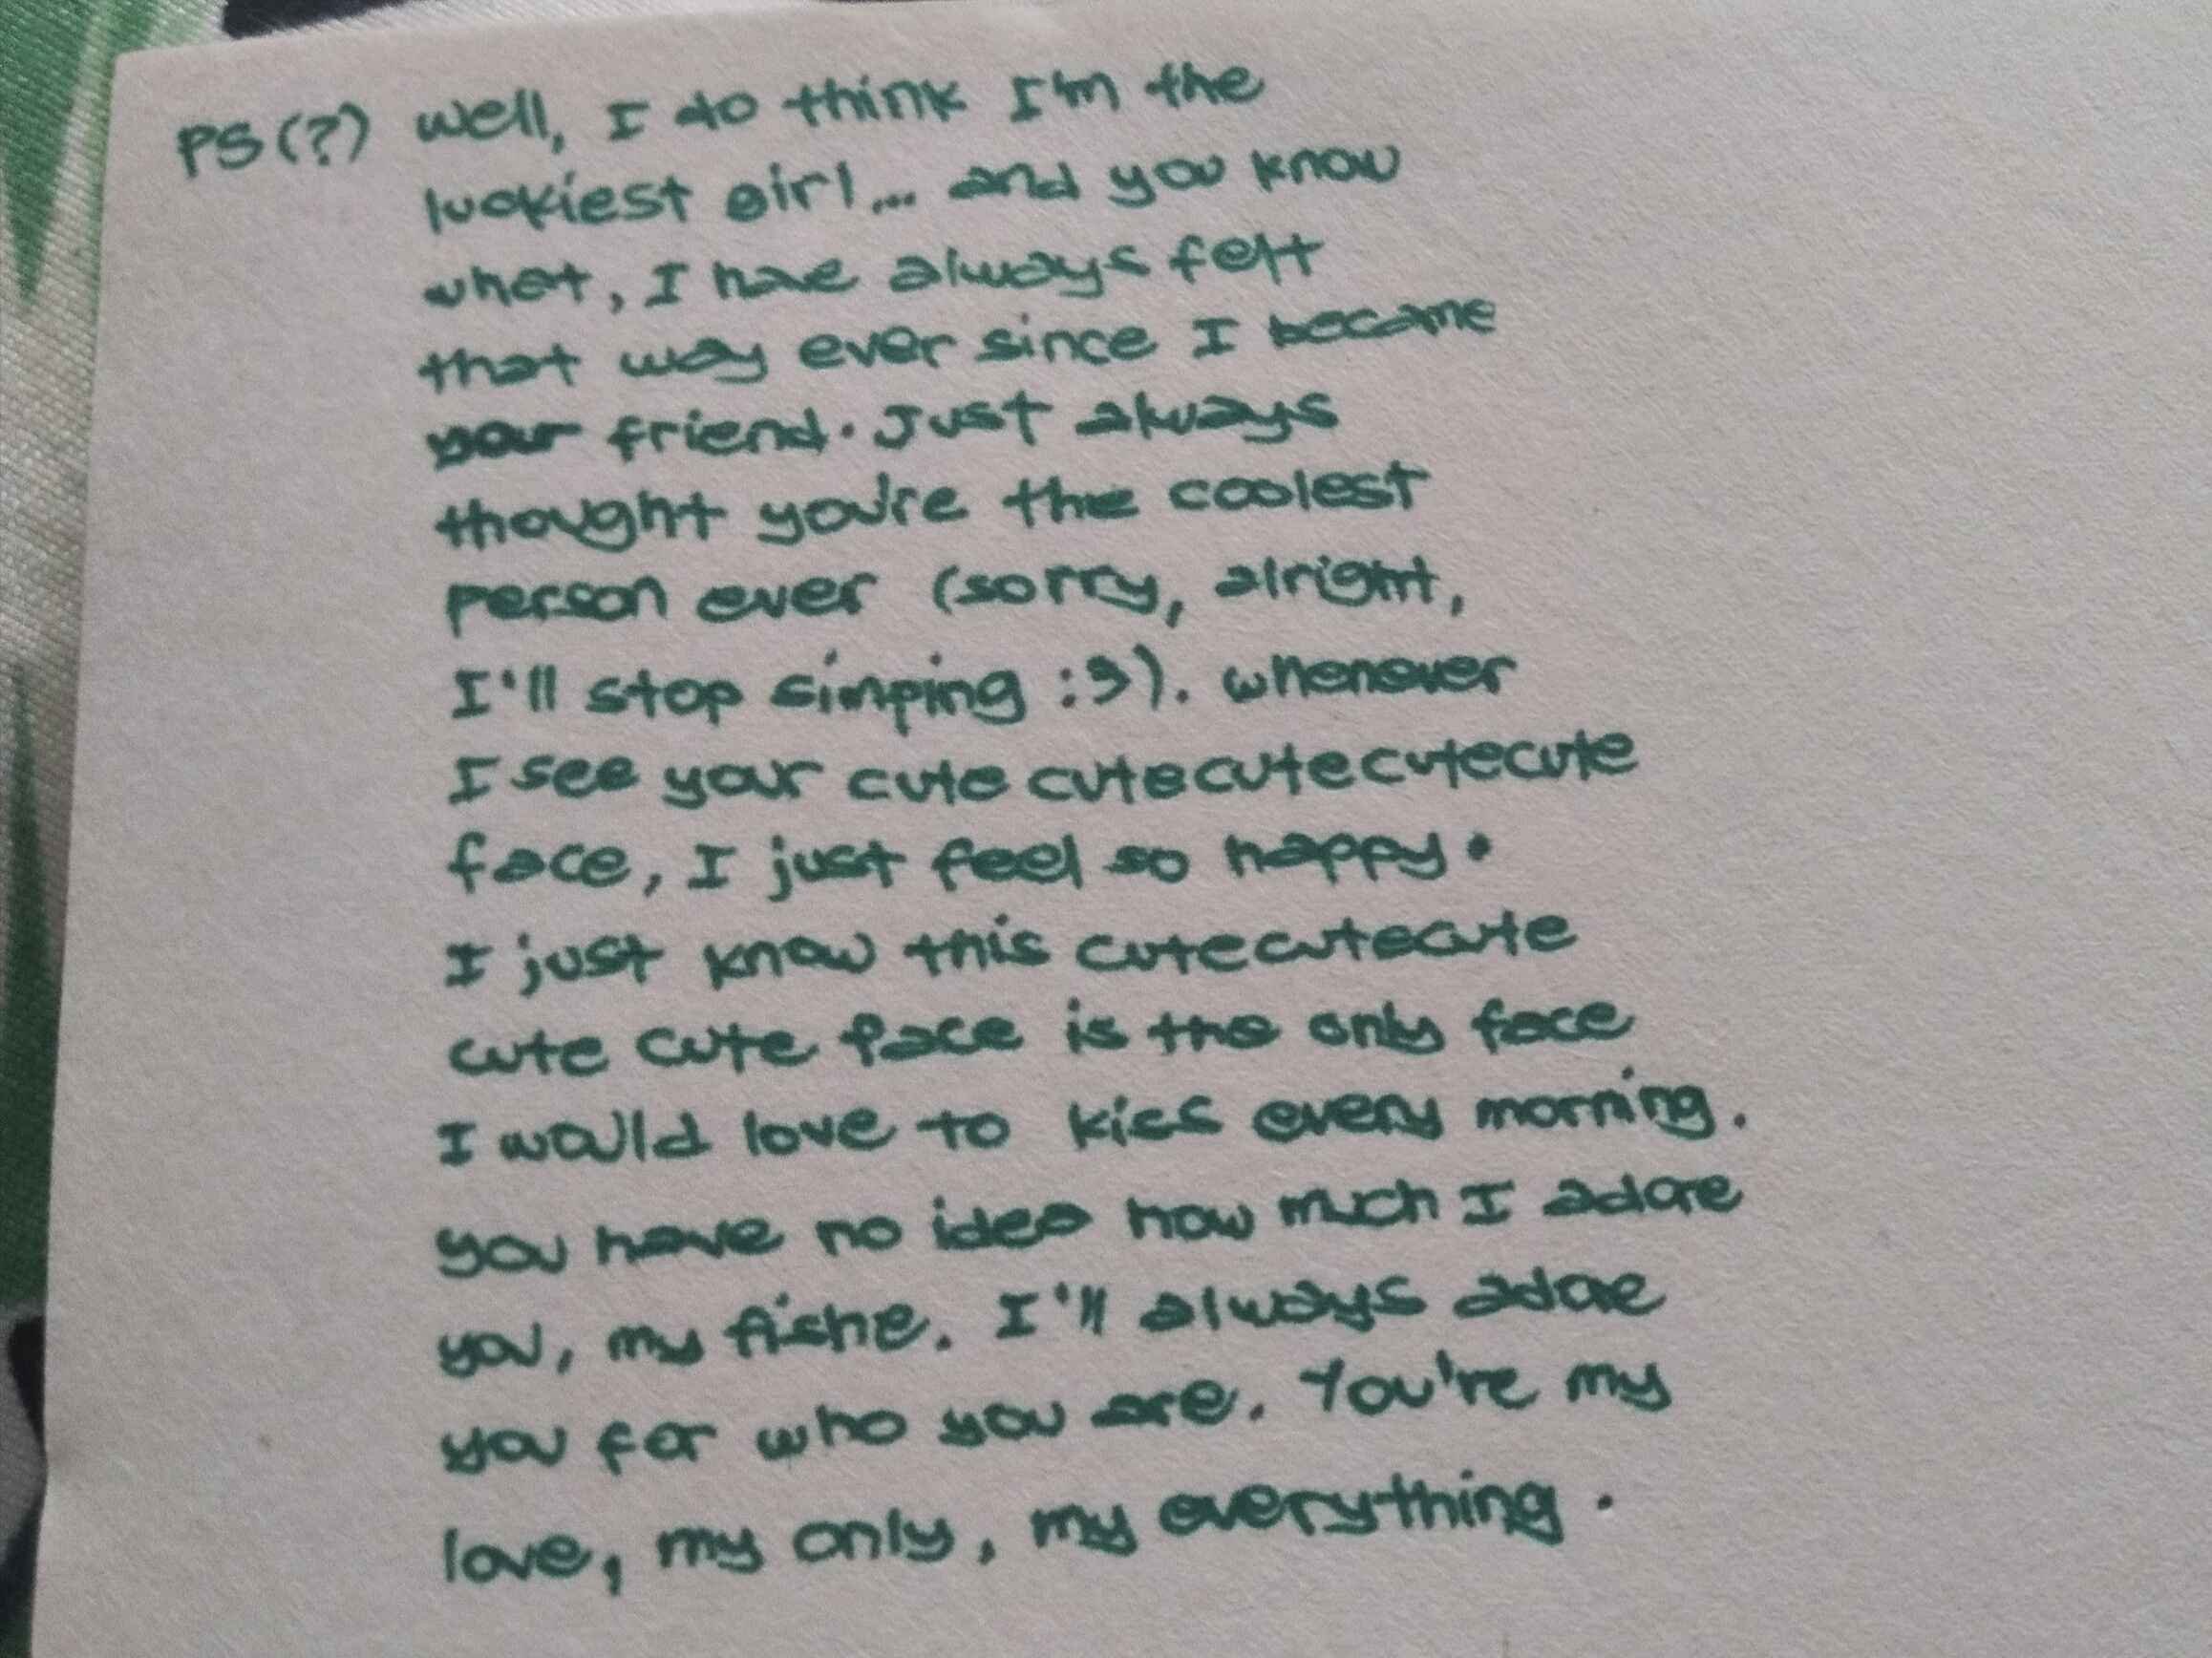 PS(?) well, I do think I'm the
luckiest girl... and you know
what, I have always felt
that way ever since I became
your friend. Just always
thought you're the coolest
person ever (sorry, alright,
I'll stop simping :3). whenever
I see your cute cutecutecutecute
face, I just feel so happy.
I just know this cutecutecute
cute cute face is the only face
I would love to kiss every morning.
you have no idea how much I adore
you, my fishe. I'll always adore
you for who you are. You're my
love, my only, my everything.